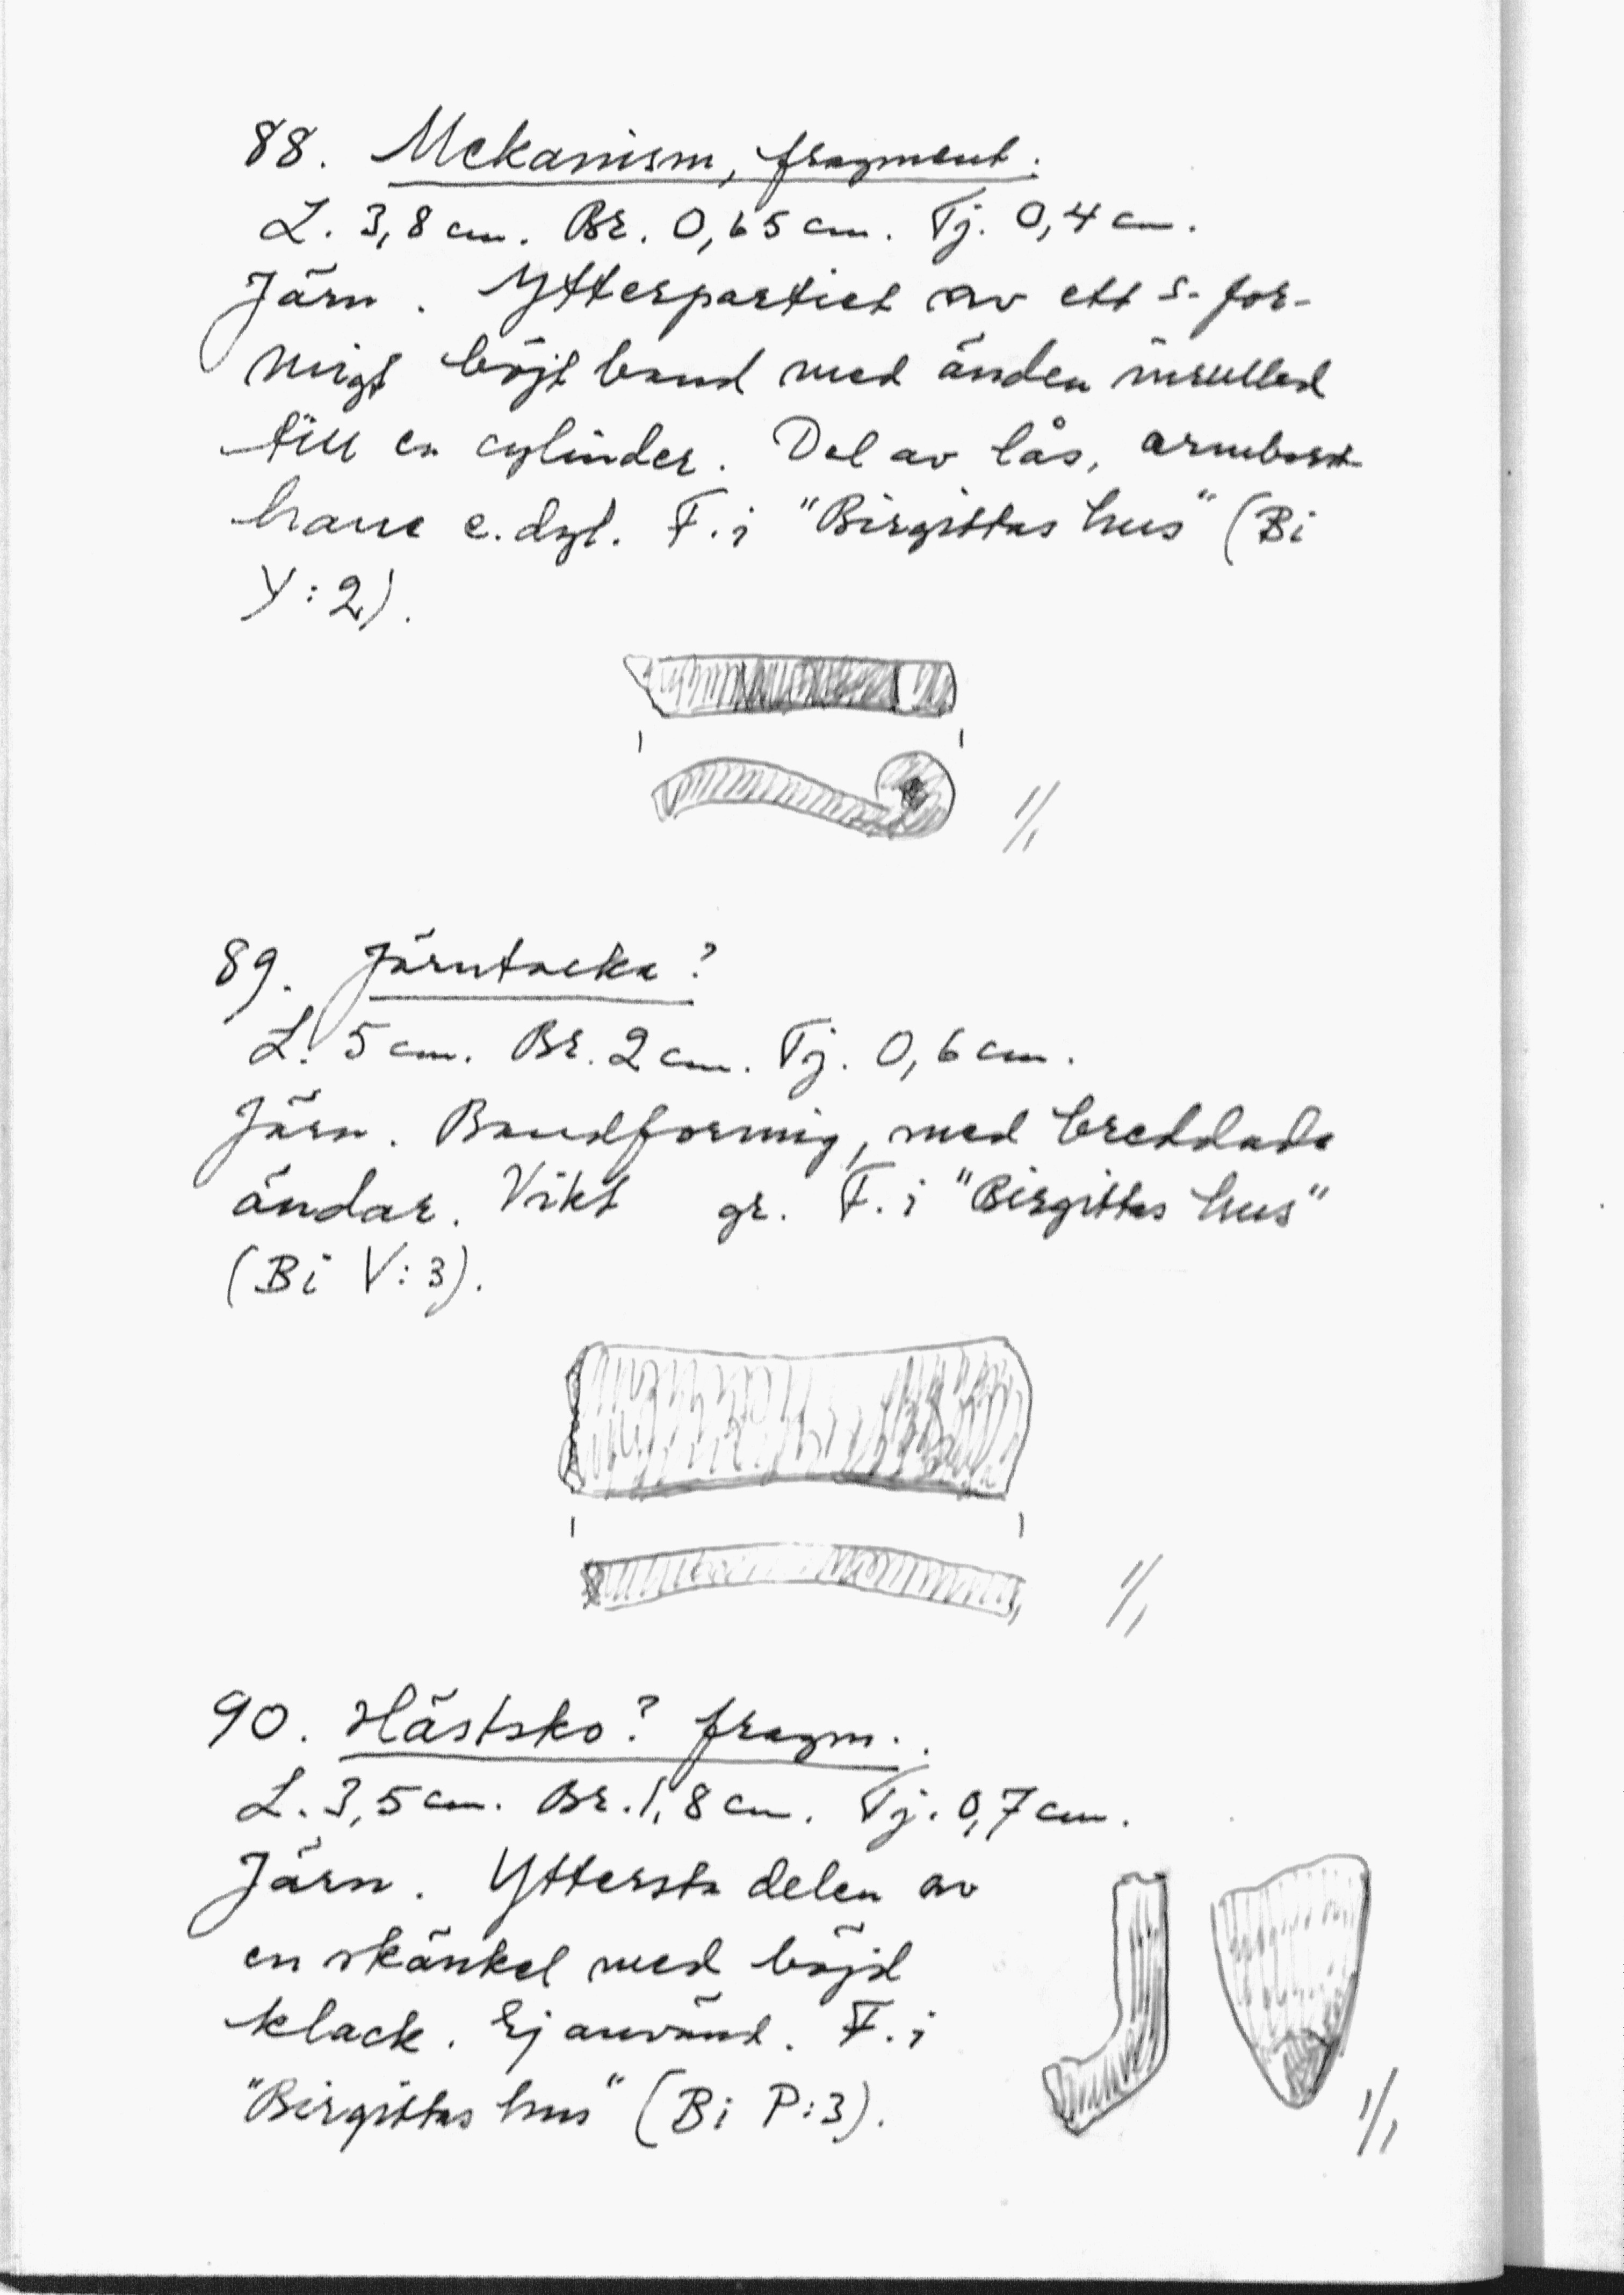 88. Mekanism, fragment.
L. 3,8 cm. Br. 0,65 cm. Tj. 0,4 cm.
Järn. Ytterpartiet av ett s-for-
migt böjt band med änden inrullad
till en cylinder. Del av lås, armborst-
hane e.dyl. F. i "Birgittas hus" (Bi
Y:2).
1/1
89. Järntacka?
L. 5 cm. Br. 2 cm. Tj. 0,6 cm.
Järn. Bandformig, med breddade
ändar. Vikt gr. F. i "Birgittas hus"
(Bi V:3).
1/1
90. Hästsko? fragm..
L. 3,5 cm. Br. 1,8 cm. Tj. 0,7 cm.
Järn. Yttersta delen av
en skänkel med böjd
klack. Ej använd. F. i
"Birgittas hus" (Bi P:3).
1/1